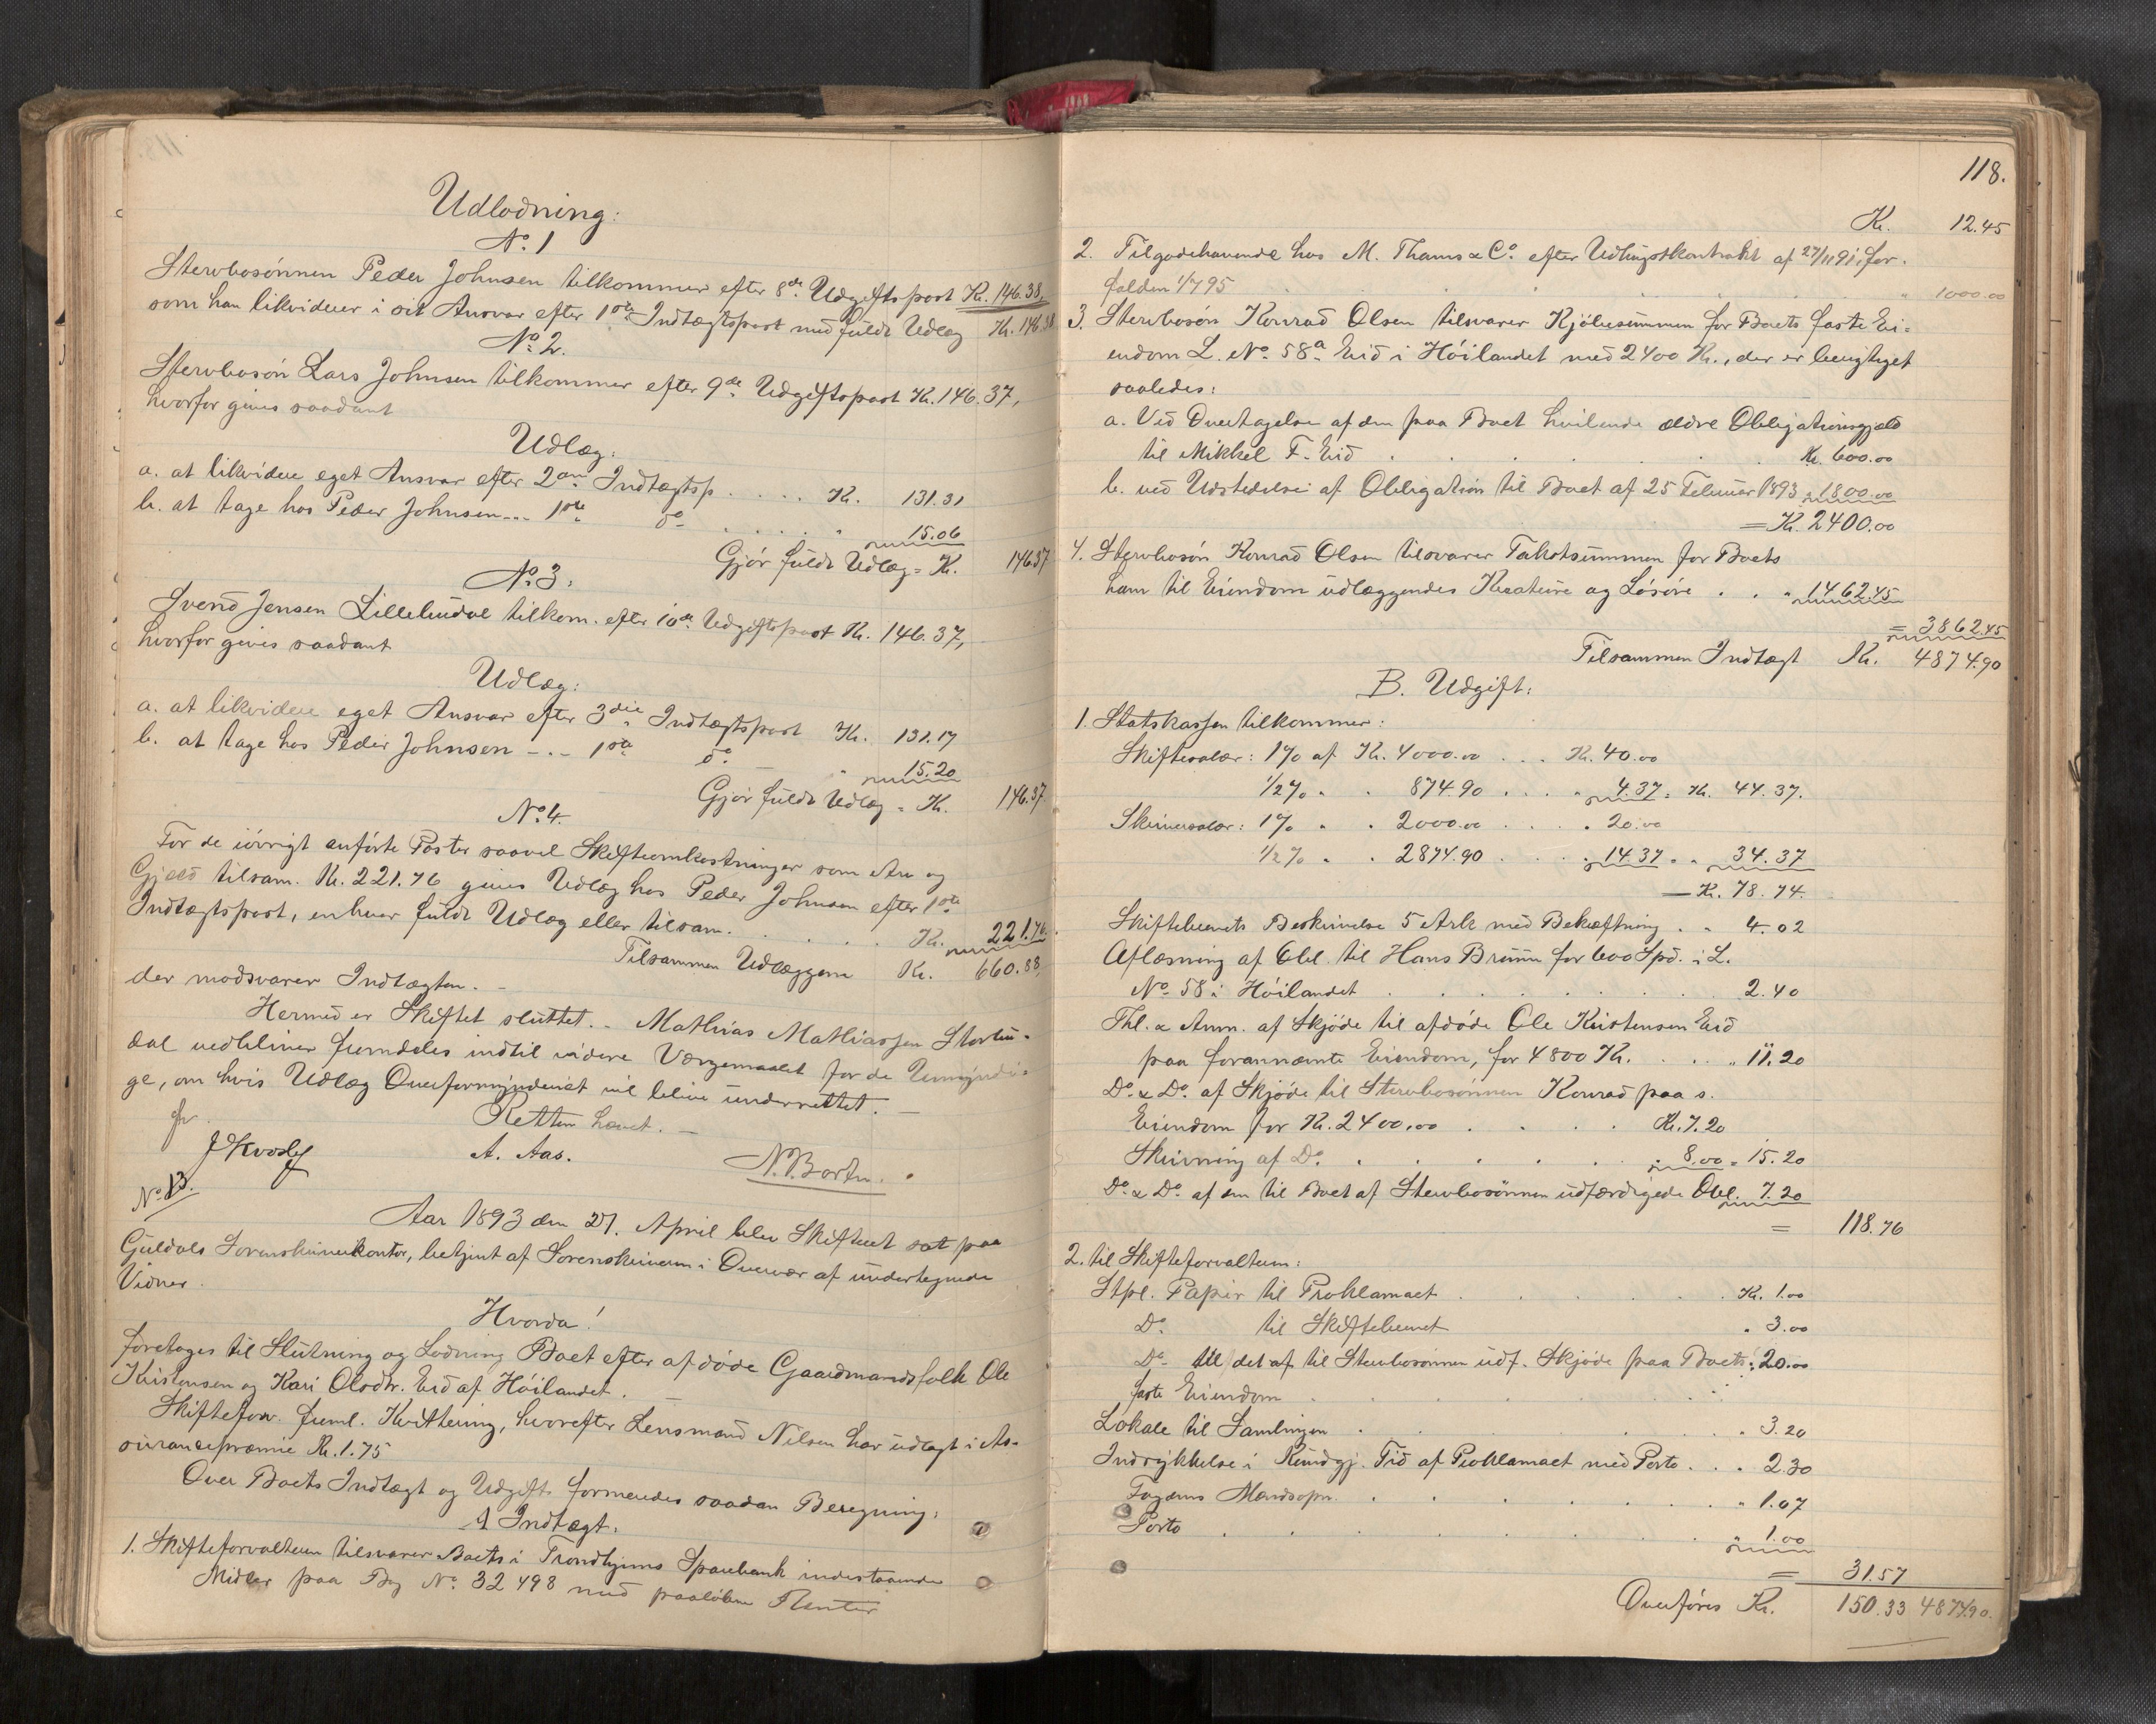 Udlodning:
No. 1
Stervbosønnen Peder Johnsen tilkommer efter 8de Udgiftspost Kr. 146.38,
som han likviderer i sit Ansvar efter 1ste Indtægtspost med fuldt Udlæg Kr. 146.38
No. 2.
Stervbosøn Lars Johnsen tilkommer efter 9de Udgiftspost Kr. 146.37,
hvorfor gives saadant
Udlæg:
a. at likvidere eget Ansvar efter 2den Indtægtsp. . . . Kr. 131.31
b. at tage hos Peder Johnsen -.- 1ste do. . . . . " 15.06
Gjør fuldt Udlæg = Kr. 146.37
No. 3.
Svend Jensen Lillebudal tilkom. efter 10de Udgiftspost Kr. 146.37,
hvorfor gives saadant
Udlæg:
a. at likvidere eget Ansvar efter 3die Indtægtspost Kr. 131.17
b. at tage hos Peder Johnsen -.- 1ste do. — " 15.20
Gjør fuldt Udlæg = Kr. 146.37
No. 4.
For de iøvrigt anførte Poster saavel Skifteomkostninger som Arv og
Gjæld tilsam. Kr. 221.76 gives Udlæg hos Peder Johnsen efter 1ste
Indtægtspost, enhver fuldt Udlæg eller tilsam. . . . . . Kr. 221.76.
Tilsammen Udlæggene Kr. 660.88,
der modsvarer Indtægten. -
Hermed er Skiftet sluttet. - Mathias Mathiassen Storbu-
dal vedbliver fremdeles indtil videre Værgemaalet for de Umyndi-
ge, om hvis Udlæg Overformynderiet vil blive underrettet. -
Retten hævet. -
A. Aas.
N. Borten.
No. 13.
Aar 1893 den 27. April blev Skifteret sat paa
Guldals Sorenskriverkontor, betjent af Sorenskriveren i Overvær af undertegnede
Vidner.
Hvorda!
foretoges til Slutning og Lodning Boet efter afdøde Gaardmandsfolk Ole
Kristensen og Kari Olsdtr. Eid af Høilandet. -
Skifteforv. freml. Kvittering, hvorefter Lensmand Nilsen har udlagt i As-
surancepræmie Kr. 1.75
Over Boets Indtægt og Udgift formeredes saadan Beregning:
A Indtægt.
1. Skifteforvalteren tilsvarer Boets i Trondhjems Sparebank indestaaende
Midler paa Bog No. 32498 med paaløbne Renter
118.
Kr. 12.45
2. Tilgodehavende hos M. Thams & Co. efter Udhugstkontrakt af 27/11 91, for-
falden 1/7 95 . . . . " 1000.00
3. Stervbosøn Konrad Olsen tilsvarer Kjøbesummen for Boets faste Ei-
endom L. No. 58a Eid i Høilandet med 2400 Kr., der er berigtiget
saaledes:
a. Ved Overtagelse af den paa Boet hvilende ældre Obligationsgjæld
til Mikkel F. Eid . . . . . Kr. 600.00
b. ved Udstedelse af Obligation til Boet af 25 Februar 1893 " 1800.00
= Kr. 2400.00
4. Stervbosøn Konrad Olsen tilsvarer Takstsummen for Boets
ham til Eiendom udlæggendes Kreature og Løsøre . . " 1462.45
= 3862.45
Tilsammen Indtægt Kr. 4874.90
B. Udgift:
1. Statskassen tilkommer:
Skiftesalær: 1% af Kr. 4000.00 . . . Kr. 40.00
1/2% " " 874.90 . . . . " 4.37 = Kr. 44.37.
Skriversalær: 1% " " 2000.00 . . . . " 20.00
1/2% " " 2874.90 . . . . " 14.37 = " 34.37
— Kr. 78.74.
Skiftebrevets Beskrivelse 5 Ark med Bekræftning . " 4.02
Aflæsning af Obl. til Hans Bruun for 600 Spd. i L.
No. 58 i Høilandet . . . . . . 2.40
Thl. & Ann. af Skjøde til afdøde Ole Kristensen Eid
paa forannævnte Eiendom, for 4800 Kr. . . . " 11.20
Do. & Do. af Skjøde til Stervbosønnen Konrad paa s.
Eiendom for Kr. 2400.00 . . . . Kr. 7.20
Skrivning af Do. . . . . . " 8.00 = 15.20
Do. & Do. af en til Boet af Stervbosønnen udfærdigede Obl. 7.20
= 118.76
2. til Skifteforvalteren:
Stpl. Papir til Proklamaet . . . . . Kr. 1.00
Do. til Skiftebrevet " 3.00
Do. til det af til Stervbosønnen udf. Skjøde paa Boets " 20.00
faste Eiendom . . . .
Lokale til Samlingen . . . . " 3.20
Indrykkelse i Kundgj. Tid. af Proklamaet med Porto . . . 2.30
. . . . . . " 1.07
Porto . . . . . . " 1.00
= 31.57
Overføres Kr. 150.33 4874.90.